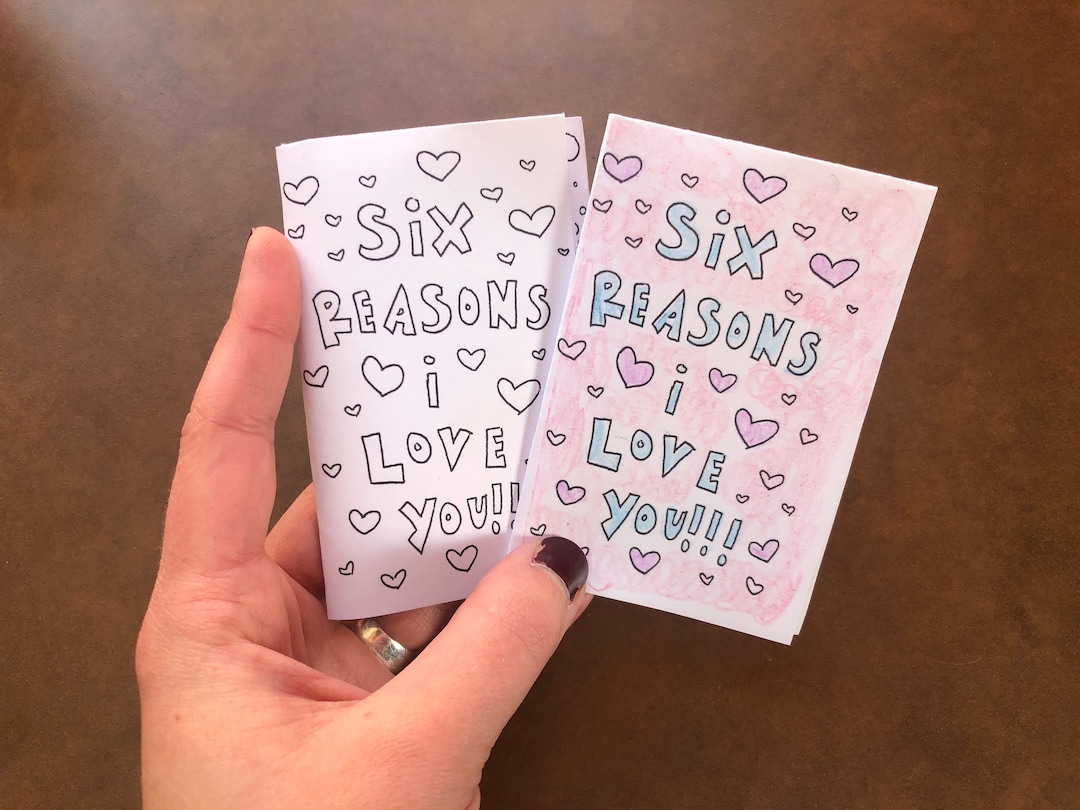 SiX
REASONS
i
LOVE
YOU!!
SiX
REASONS
i
LOVE
YOU!!!